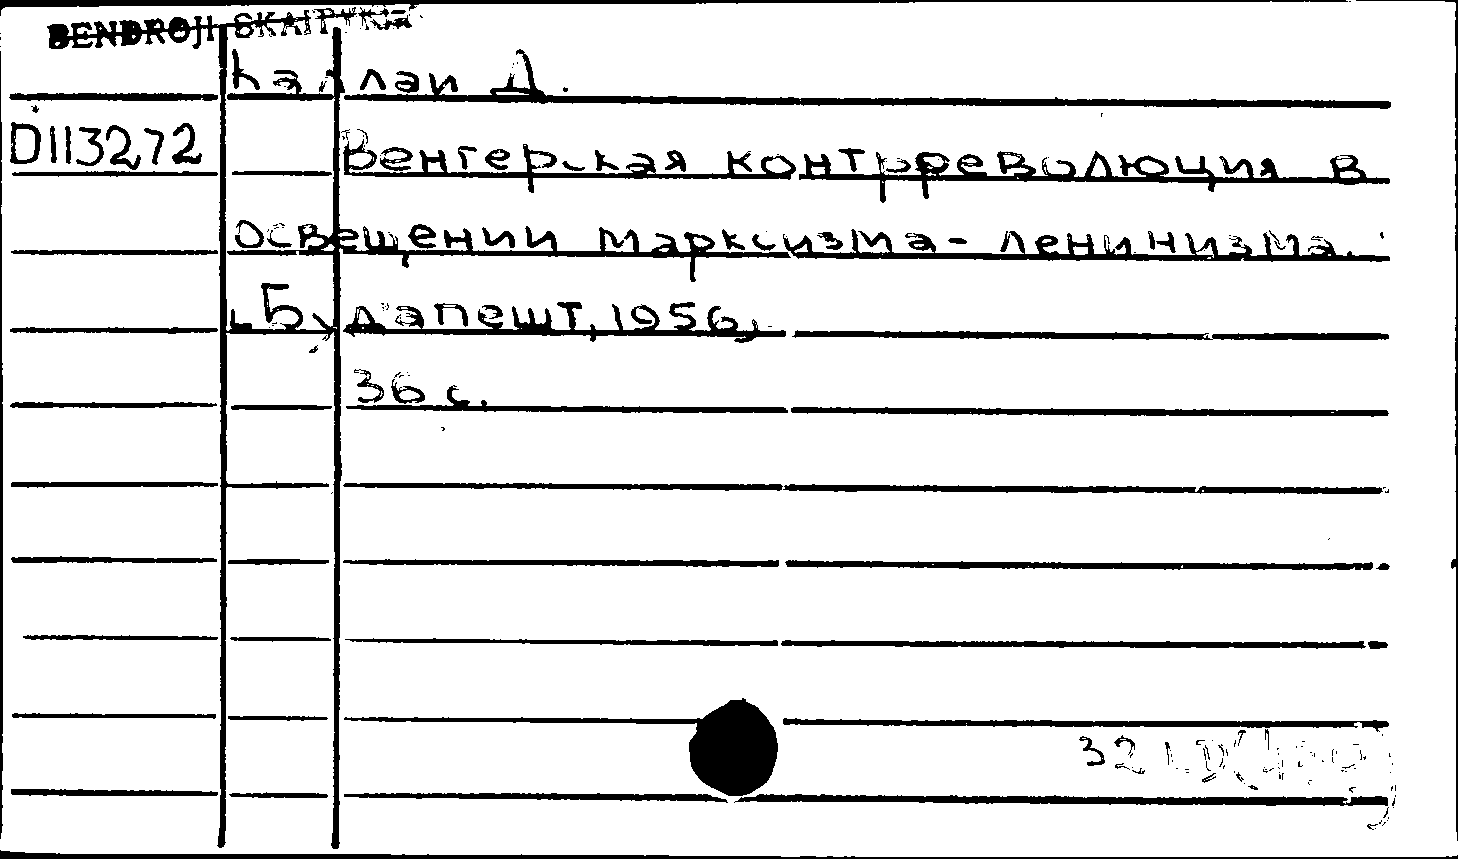 BENDROJI SKAITYKLA
Каллаи Д.
D113272 Венгерская контрреволюция в
освещении марксизма-ленинизма.
Будапешт, 1956,
36 с.